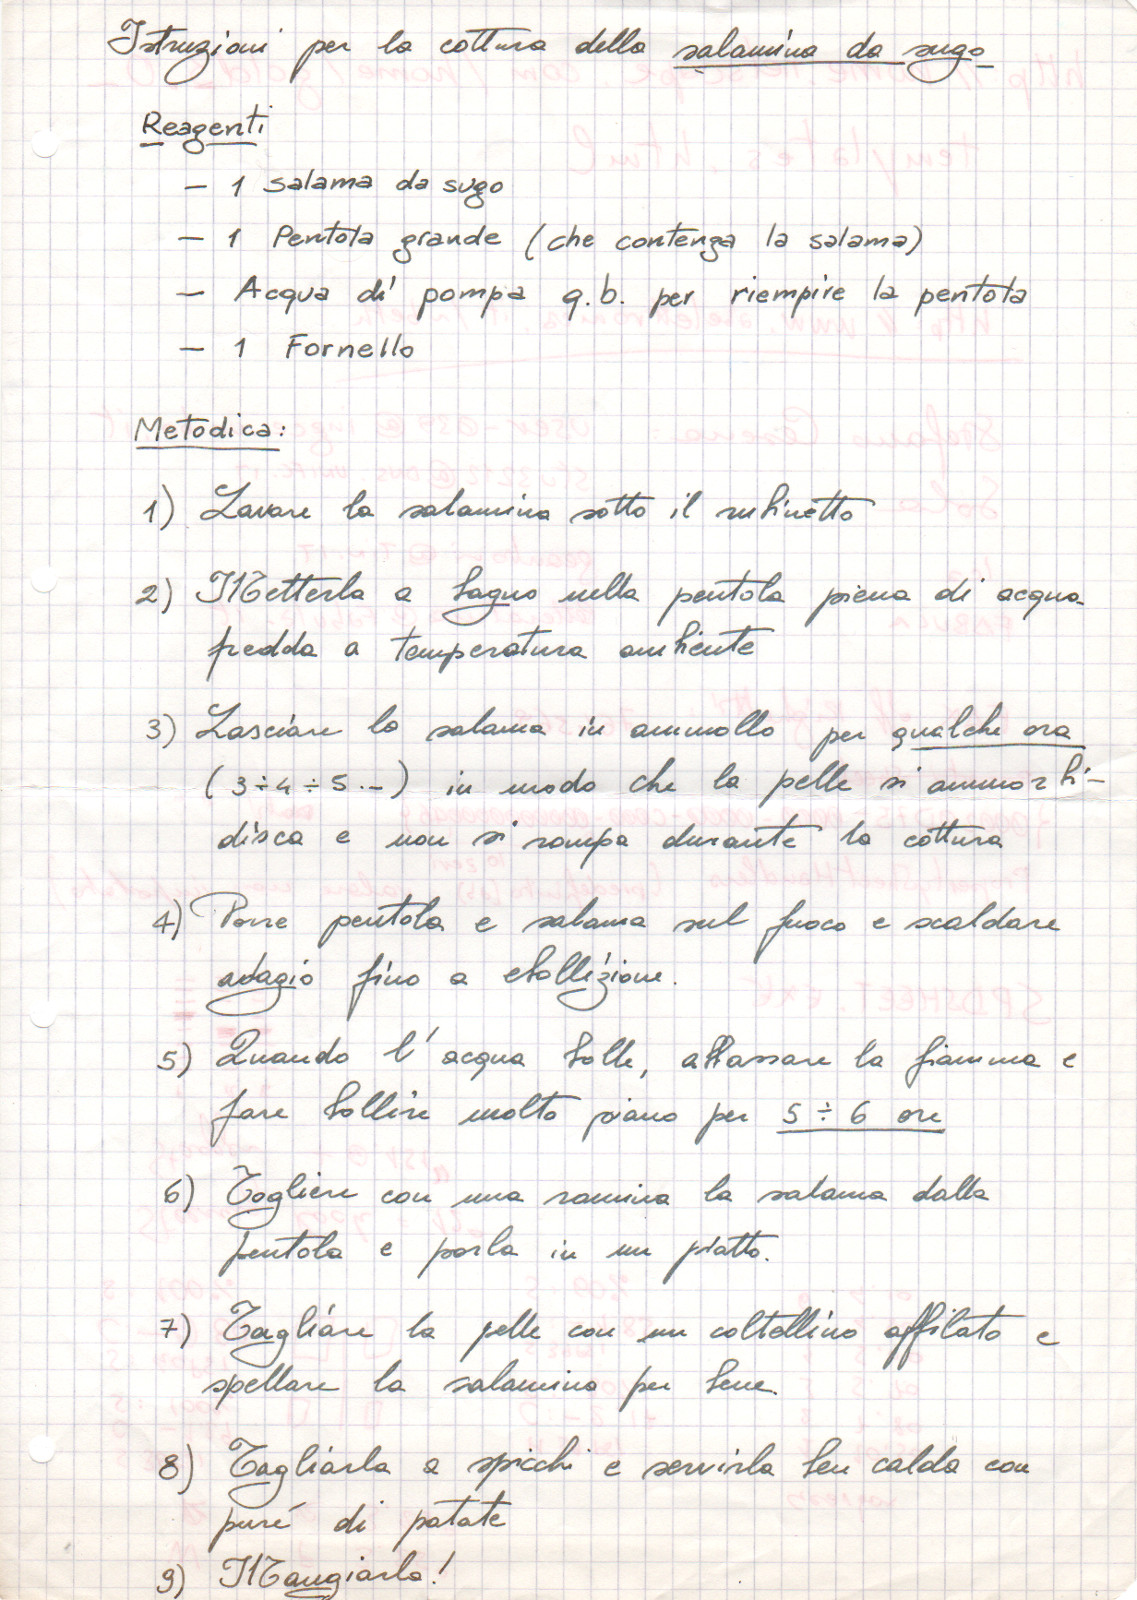 Istruzioni per la cottura della salamina da sugo
Reagenti
- 1 salama da sugo
- 1 Pentola grande (che contenga la salama)
- Acqua di pompa q.b. per riempire la pentola
- 1 Fornello
Metodica:
1) Lavare la salamina sotto il rubinetto
2) Metterla a bagno nella pentola piena di acqua
fredda a temperatura ambiente
3) Lasciare la salama in ammollo per qualche ora
(3÷4÷5...) in modo che la pelle si ammorbi-
disca e non si rompa durante la cottura
4) Porre pentola e salama sul fuoco e scaldare
adagio fino a ebollizione.
5) Quando l'acqua bolle, abbassare la fiamma e
fare bollire molto piano per 5÷6 ore
6) Togliere con una ramina la salama dalla
pentola e porla in un piatto.
7) Tagliare la pelle con un coltellino affilato e
spellare la salamina per bene.
8) Tagliarla a spicchi e servirla ben calda con
puré di patate
9) Mangiarla!